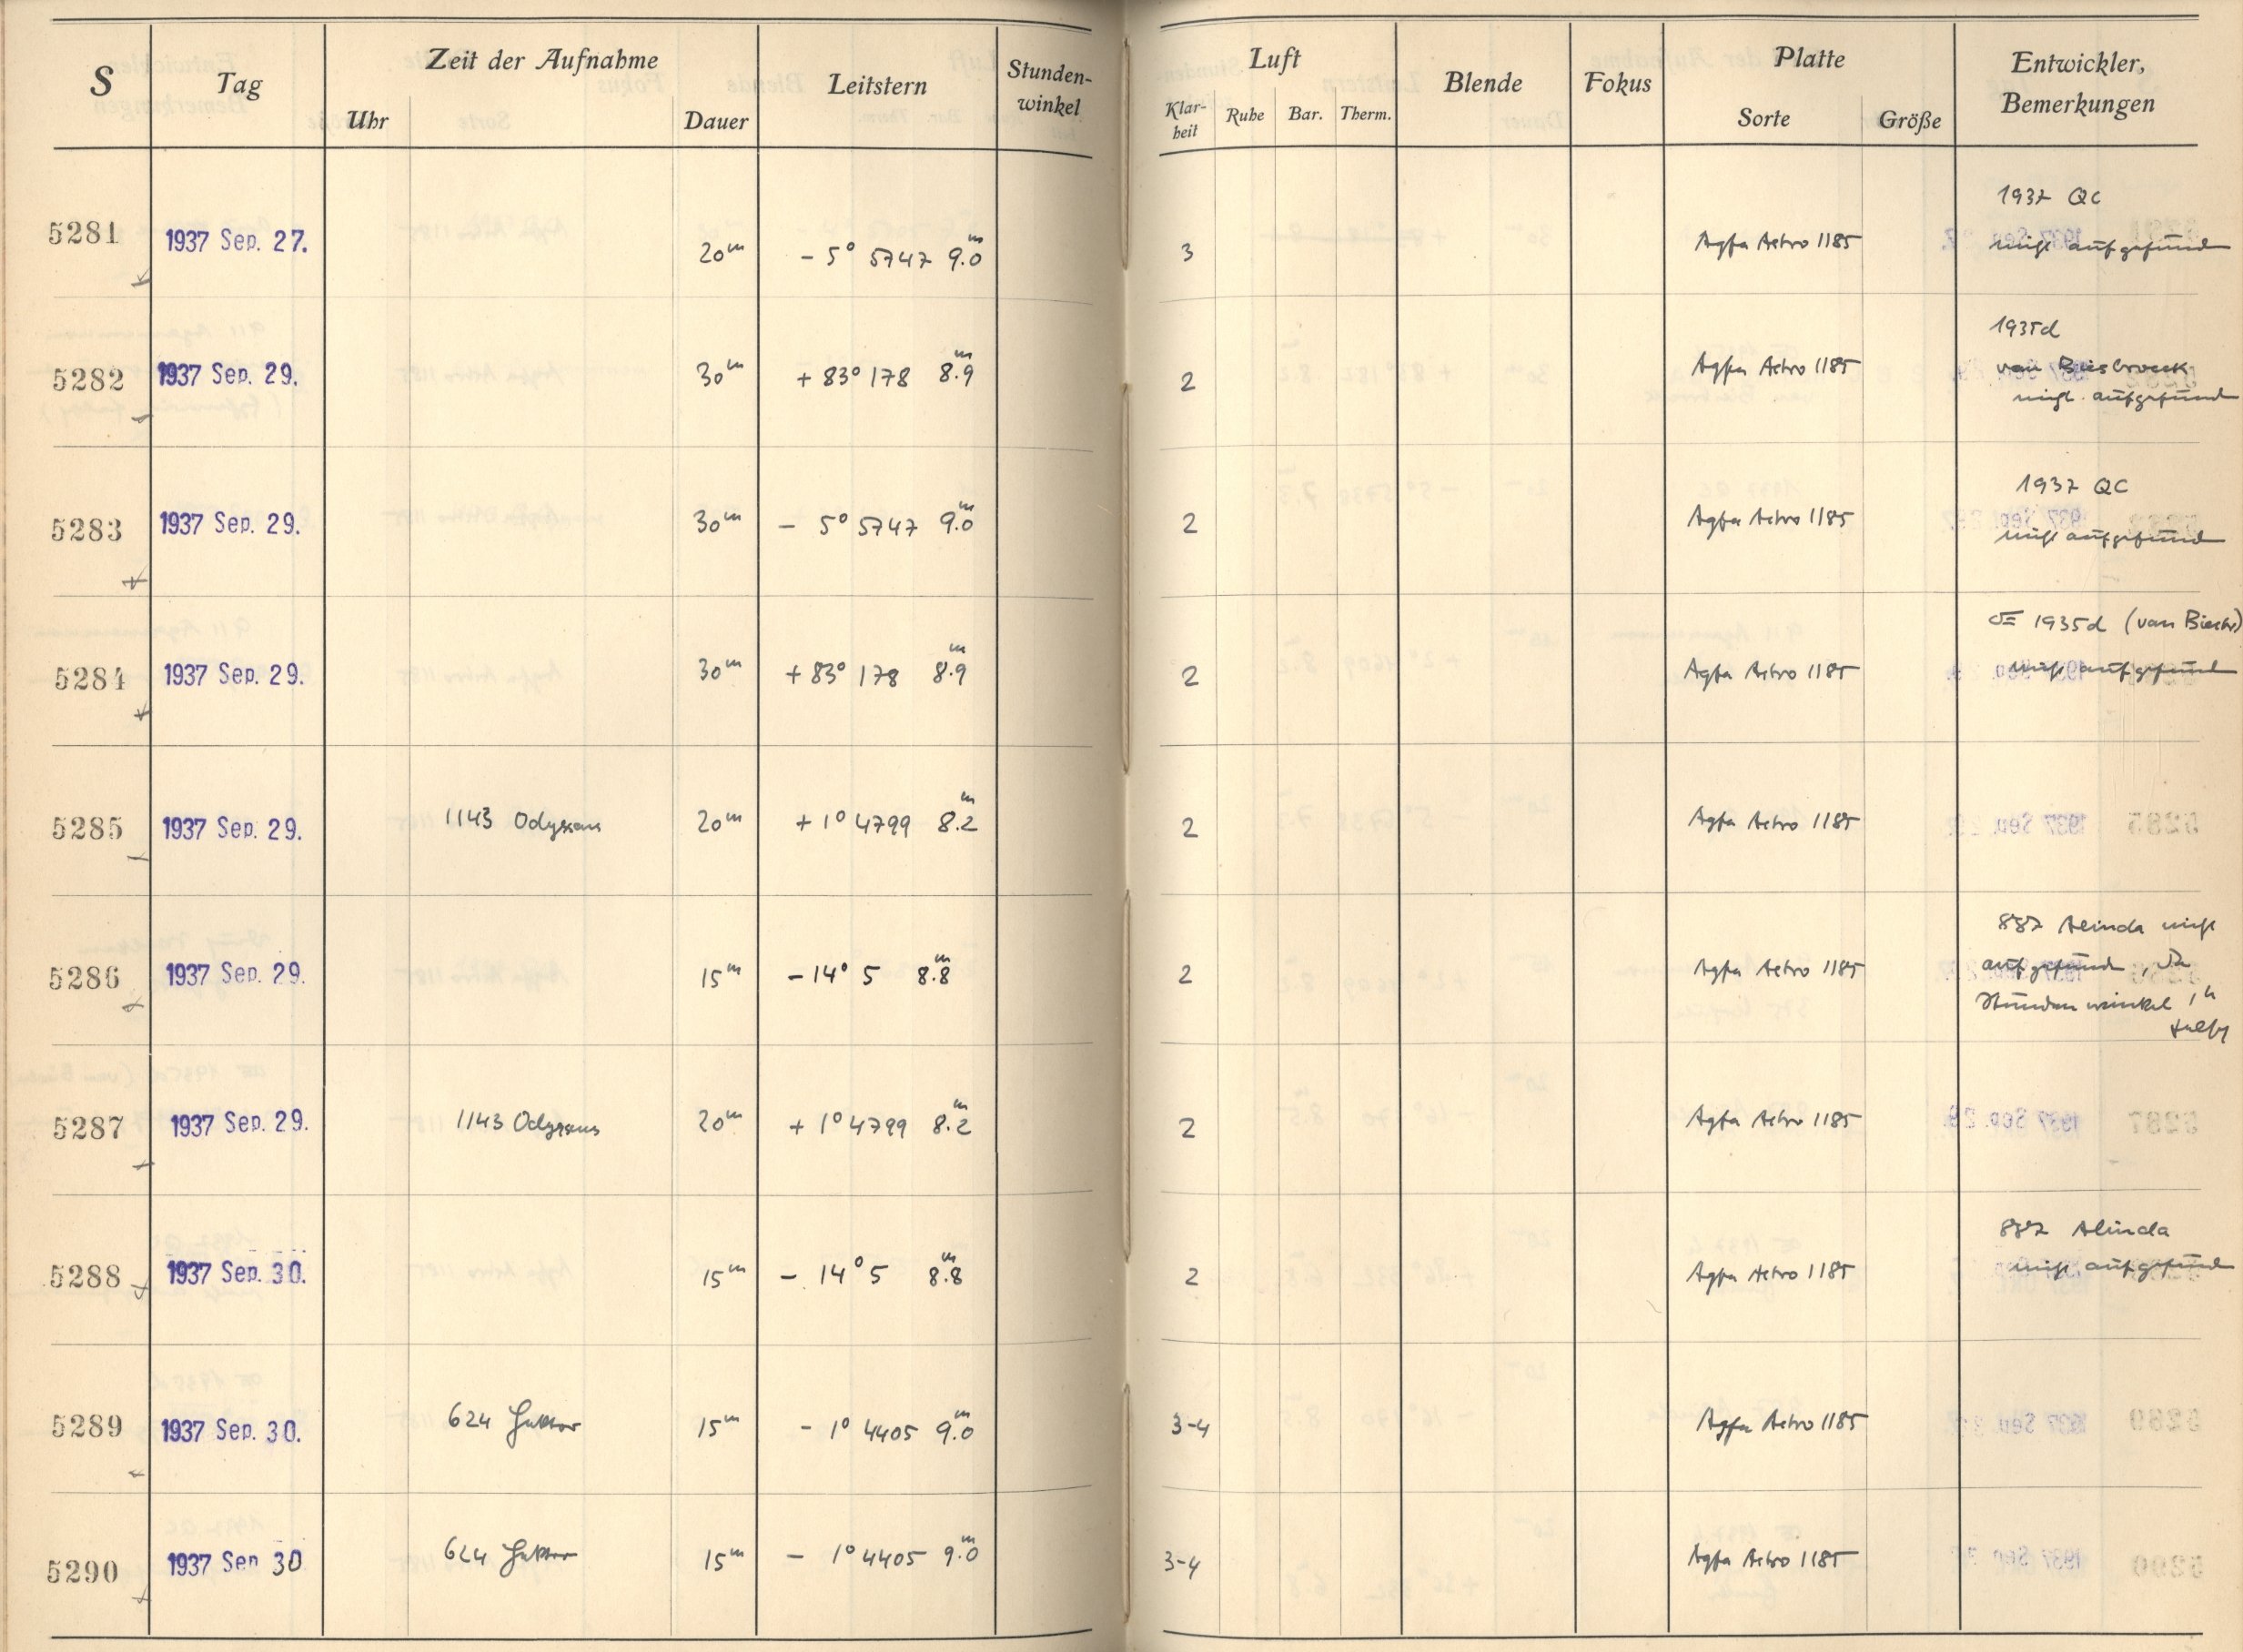 S Tag Zeit der Aufnahme Leitstern Stunden-winkel Luft Blende Fokus Platte Entwickler, Bemerkungen
Uhr Dauer Klar-heit Ruhe Bar. Therm. Sorte Größe
1937 QC
5281 1937 Sep. 27. 20m - 5° 5747 9.0m 3 Agfa Astro 1185 nicht aufgefunden
1935d
5282 1937 Sep. 29. 30m + 83° 178 8.9m 2 Agfa Astro 1185 van Biesbroeck
nicht aufgefunden
1937 QC
5283 1937 Sep. 29. 30m - 5° 5747 9.0m 2 Agfa Astro 1185 nicht aufgefunden
1935d (van Biesbr)
5284 1937 Sep. 29. 30m + 83° 178 8.9m 2 Agfa Astro 1185 nicht aufgefunden
5285 1937 Sep. 29. 1143 Odysseus 20m + 1° 4799 8.2m 2 Agfa Astro 1185
887 Alinda nicht
5286 1937 Sep. 29. 15m - 14° 5 8.8m 2 Agfa Astro 1185 aufgefunden, da
Stundenwinkel 1h
5287 1937 Sep. 29. 1143 Odysseus 20m + 1° 4799 8.2m 2 Agfa Astro 1185
887 Alinda
5288 1937 Sep. 30. 15m - 14° 5 8.8m 2 Agfa Astro 1185 nicht aufgefunden
5289 1937 Sep. 30. 624 Hektor 15m - 1° 4405 9.0m 3-4 Agfa Astro 1185
5290 1937 Sep 30 624 Hektor 15m - 1° 4405 9.0m 3-4 Agfa Astro 1185